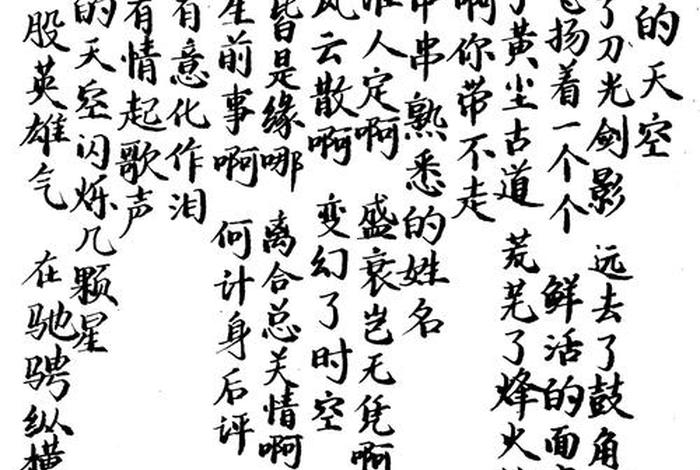 的天空
了刀光剑影 远去了鼓角
飞扬着一个个 鲜活的面
了黄尘古道 荒芜了烽火
啊你带不走
串串熟悉的姓名
谁人定啊 盛衰岂无凭啊
风云散啊 变幻了时空
皆是缘哪 离合总关情啊
生前事啊 何计身后评
有意化作泪
有情起歌声
的天空闪烁几颗星
股英雄气 在驰骋纵横